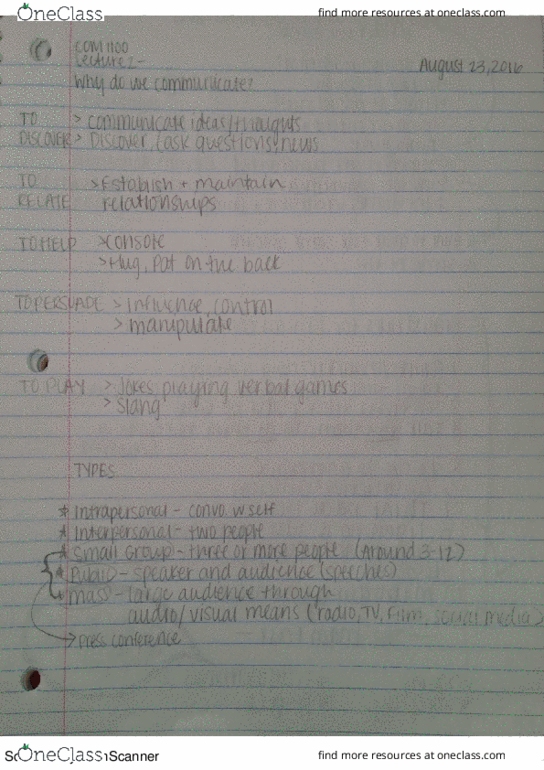 OneClass
find more resources at oneclass.com
COM 1100
Lecture 2 -
August 23, 2016
Why do we communicate?
TO > communicate ideas/thoughts
DISCOVER > Discover, task questions, news
TO > Establish + maintain
RELATE relationships
TO HELP > console
> Hug, Pat on the back
TO PERSUADE > Influence, control
> manipulate
TO PLAY > Jokes, playing verbal games
> Slang
TYPES
* Intrapersonal - convo w self
* Interpersonal - two people
* Small Group - three or more people (around 3-12)
* Public - speaker and audience (speeches)
* mass - large audience through
audio/visual means (radio, TV, film, social media)
> Press conference
OneClass
Scanner
find more resources at oneclass.com